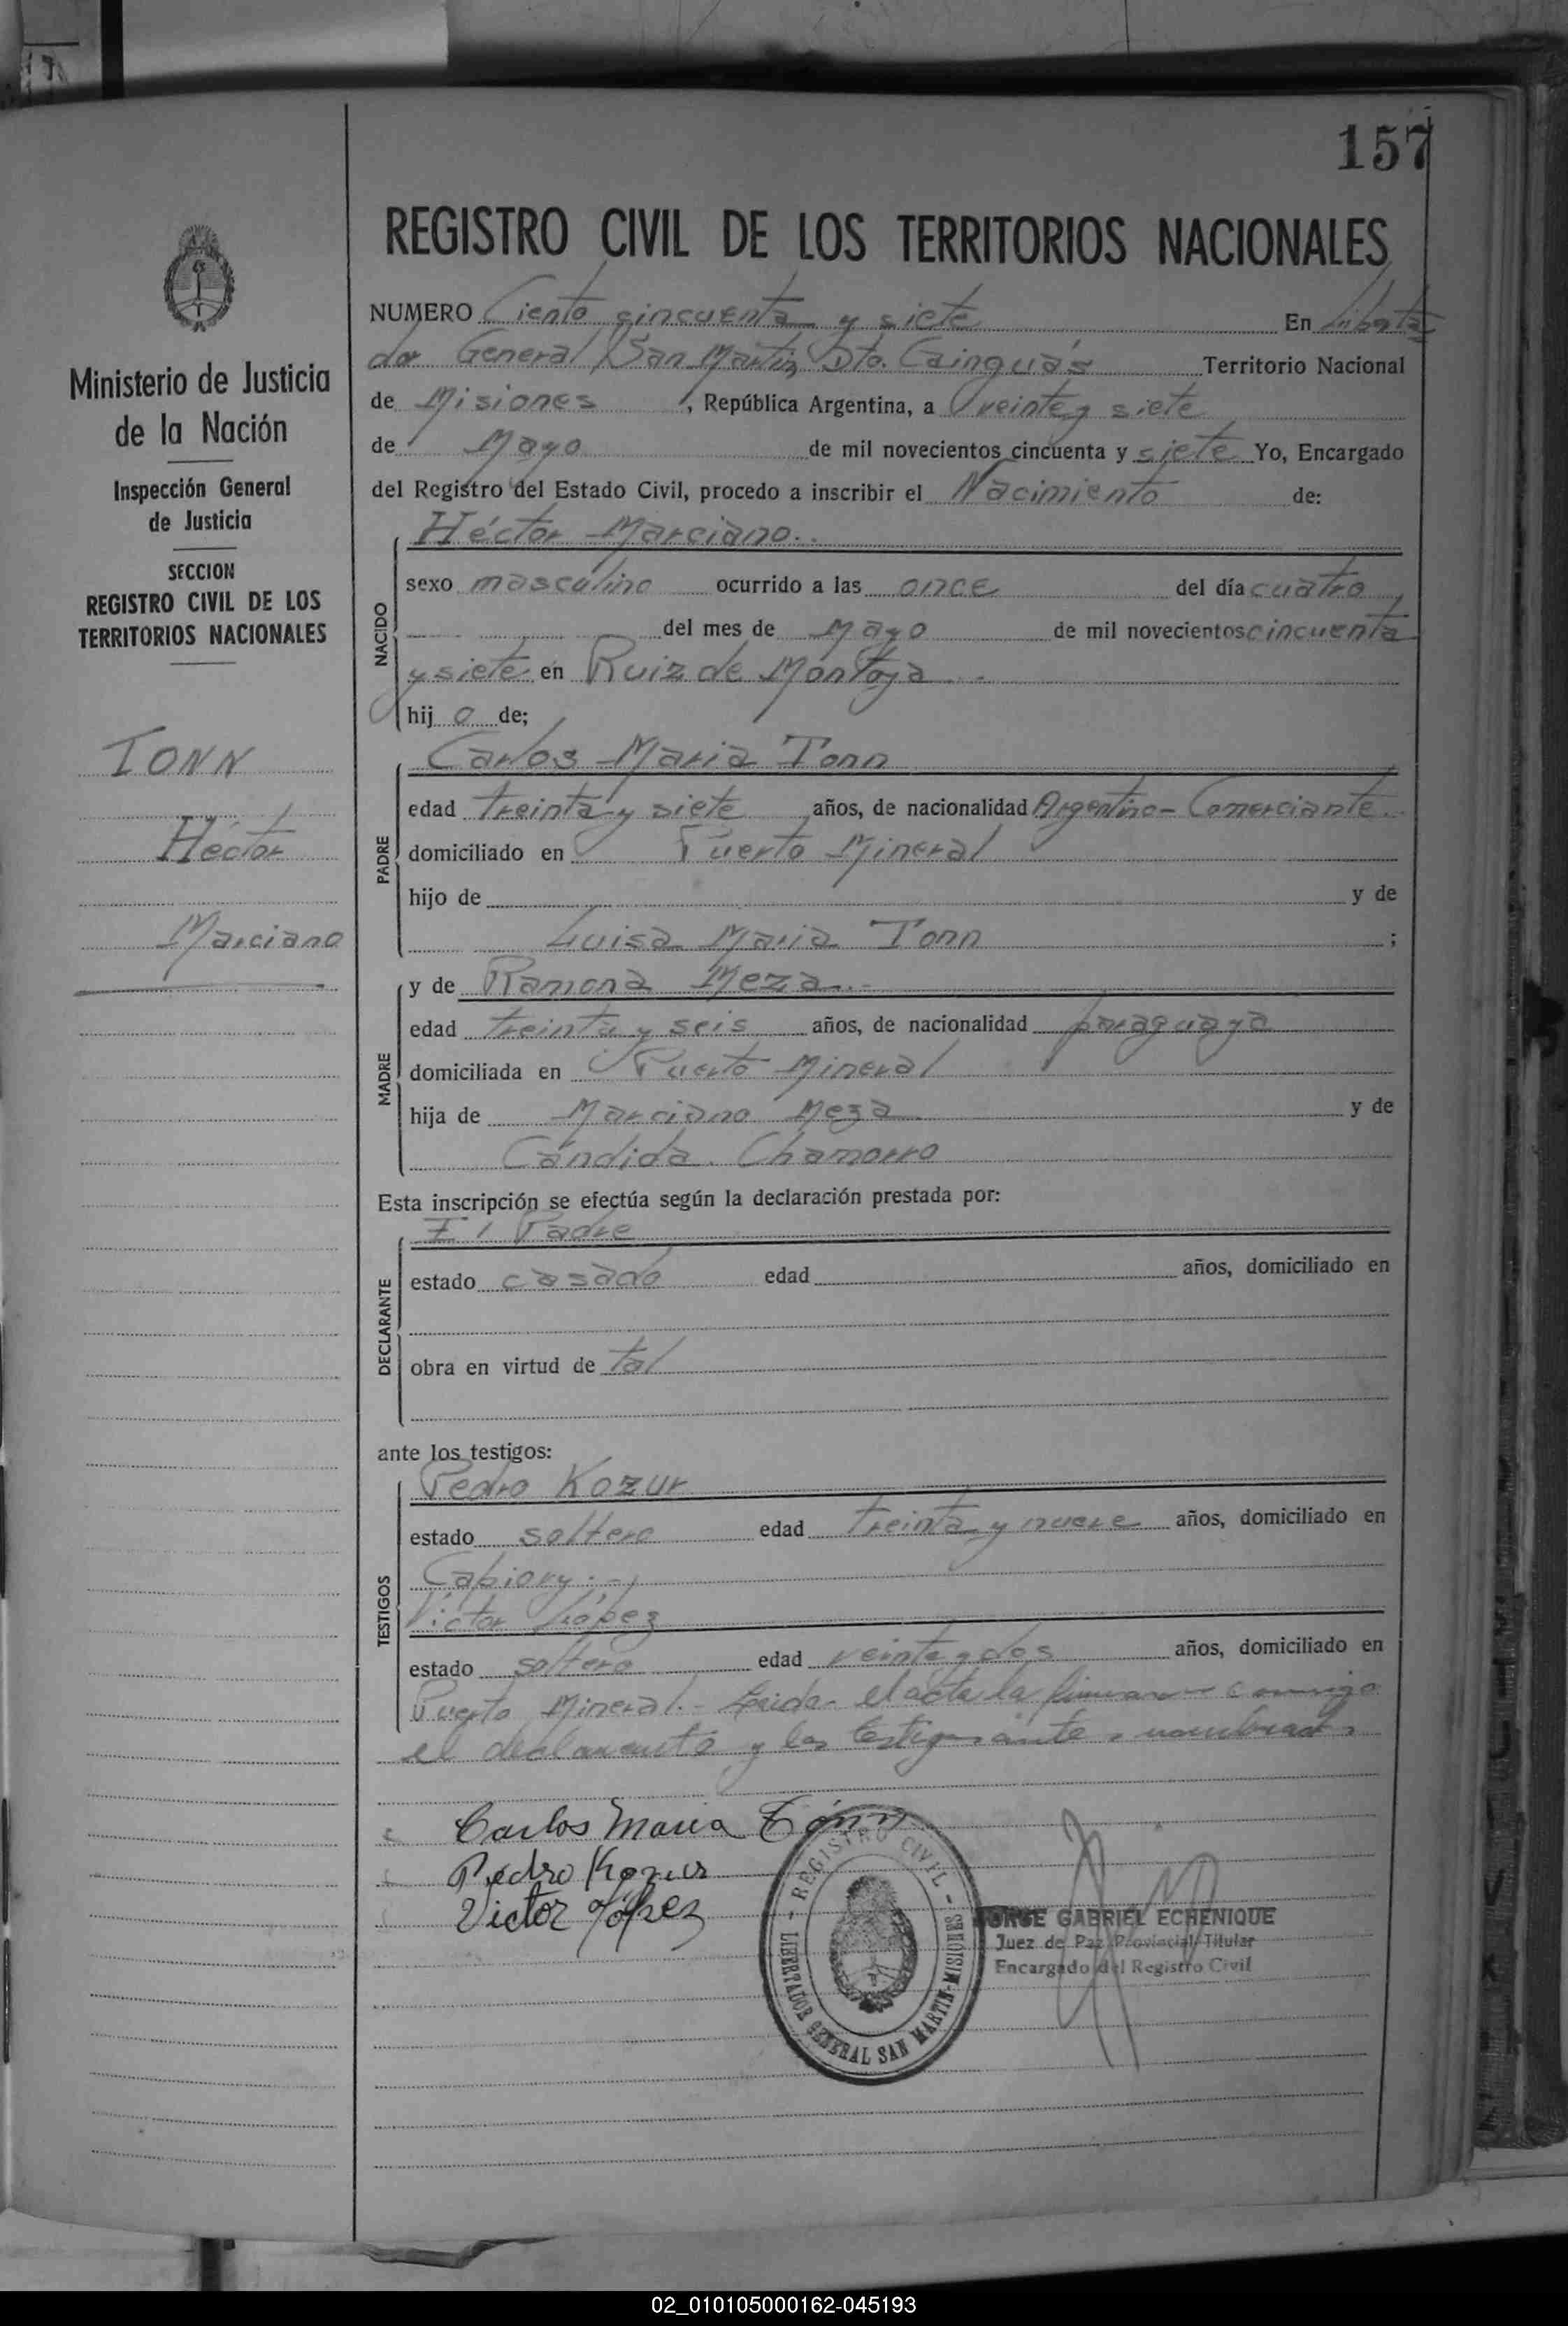 157
REGISTRO CIVIL DE LOS TERRITORIOS NACIONALES
Ministerio de Justicia
de la Nación
Inspección General
de Justicia
SECCION
REGISTRO CIVIL DE LOS
TERRITORIOS NACIONALES
TONN
Héctor
Marciano
NUMERO Ciento cincuenta y siete En Liberta
dor General San Martín Dto. Cainguás Territorio Nacional
de Misiones, República Argentina, a veinte y siete
de Mayo de mil novecientos cincuenta y siete Yo, Encargado
del Registro del Estado Civil, procedo a inscribir el Nacimiento de:
NACIDO
Héctor Marciano.
sexo masculino ocurrido a las once del día cuatro
del mes de Mayo de mil novecientos cincuenta
y siete en Ruiz de Montoya
hij o de;
PADRE
Carlos Maria Tonn
edad treinta y siete años, de nacionalidad Argentino - Comerciante.
domiciliado en Puerto Mineral
hijo de y de
Luisa Maria Tonn ;
MADRE
y de Ramona Meza.-
edad treinta y seis años, de nacionalidad paraguaya
domiciliada en Puerto Mineral
hija de Marciano Meza y de
Cándida Chamorro
Esta inscripción se efectúa según la declaración prestada por:
DECLARANTE
El Padre
estado casado edad años, domiciliado en
obra en virtud de tal
ante los testigos:
TESTIGOS
Pedro Kozur
estado soltero edad treinta y nueve años, domiciliado en
Capiovy.-
Victor López
estado soltero edad veinte y dos años, domiciliado en
Puerto Mineral.- Leida el acta la firmaron conmigo
el declarante y los testigos ante s nombrados
Carlos Maria Tónn
Pedro Kozur
Victor López
REGISTRO CIVIL
LIBERTADOR GENERAL SAN MARTIN-MISIONES
JORGE GABRIEL ECHENIQUE
Juez de Paz Provincial Titular
Encargado del Registro Civil
02_010105000162-045193